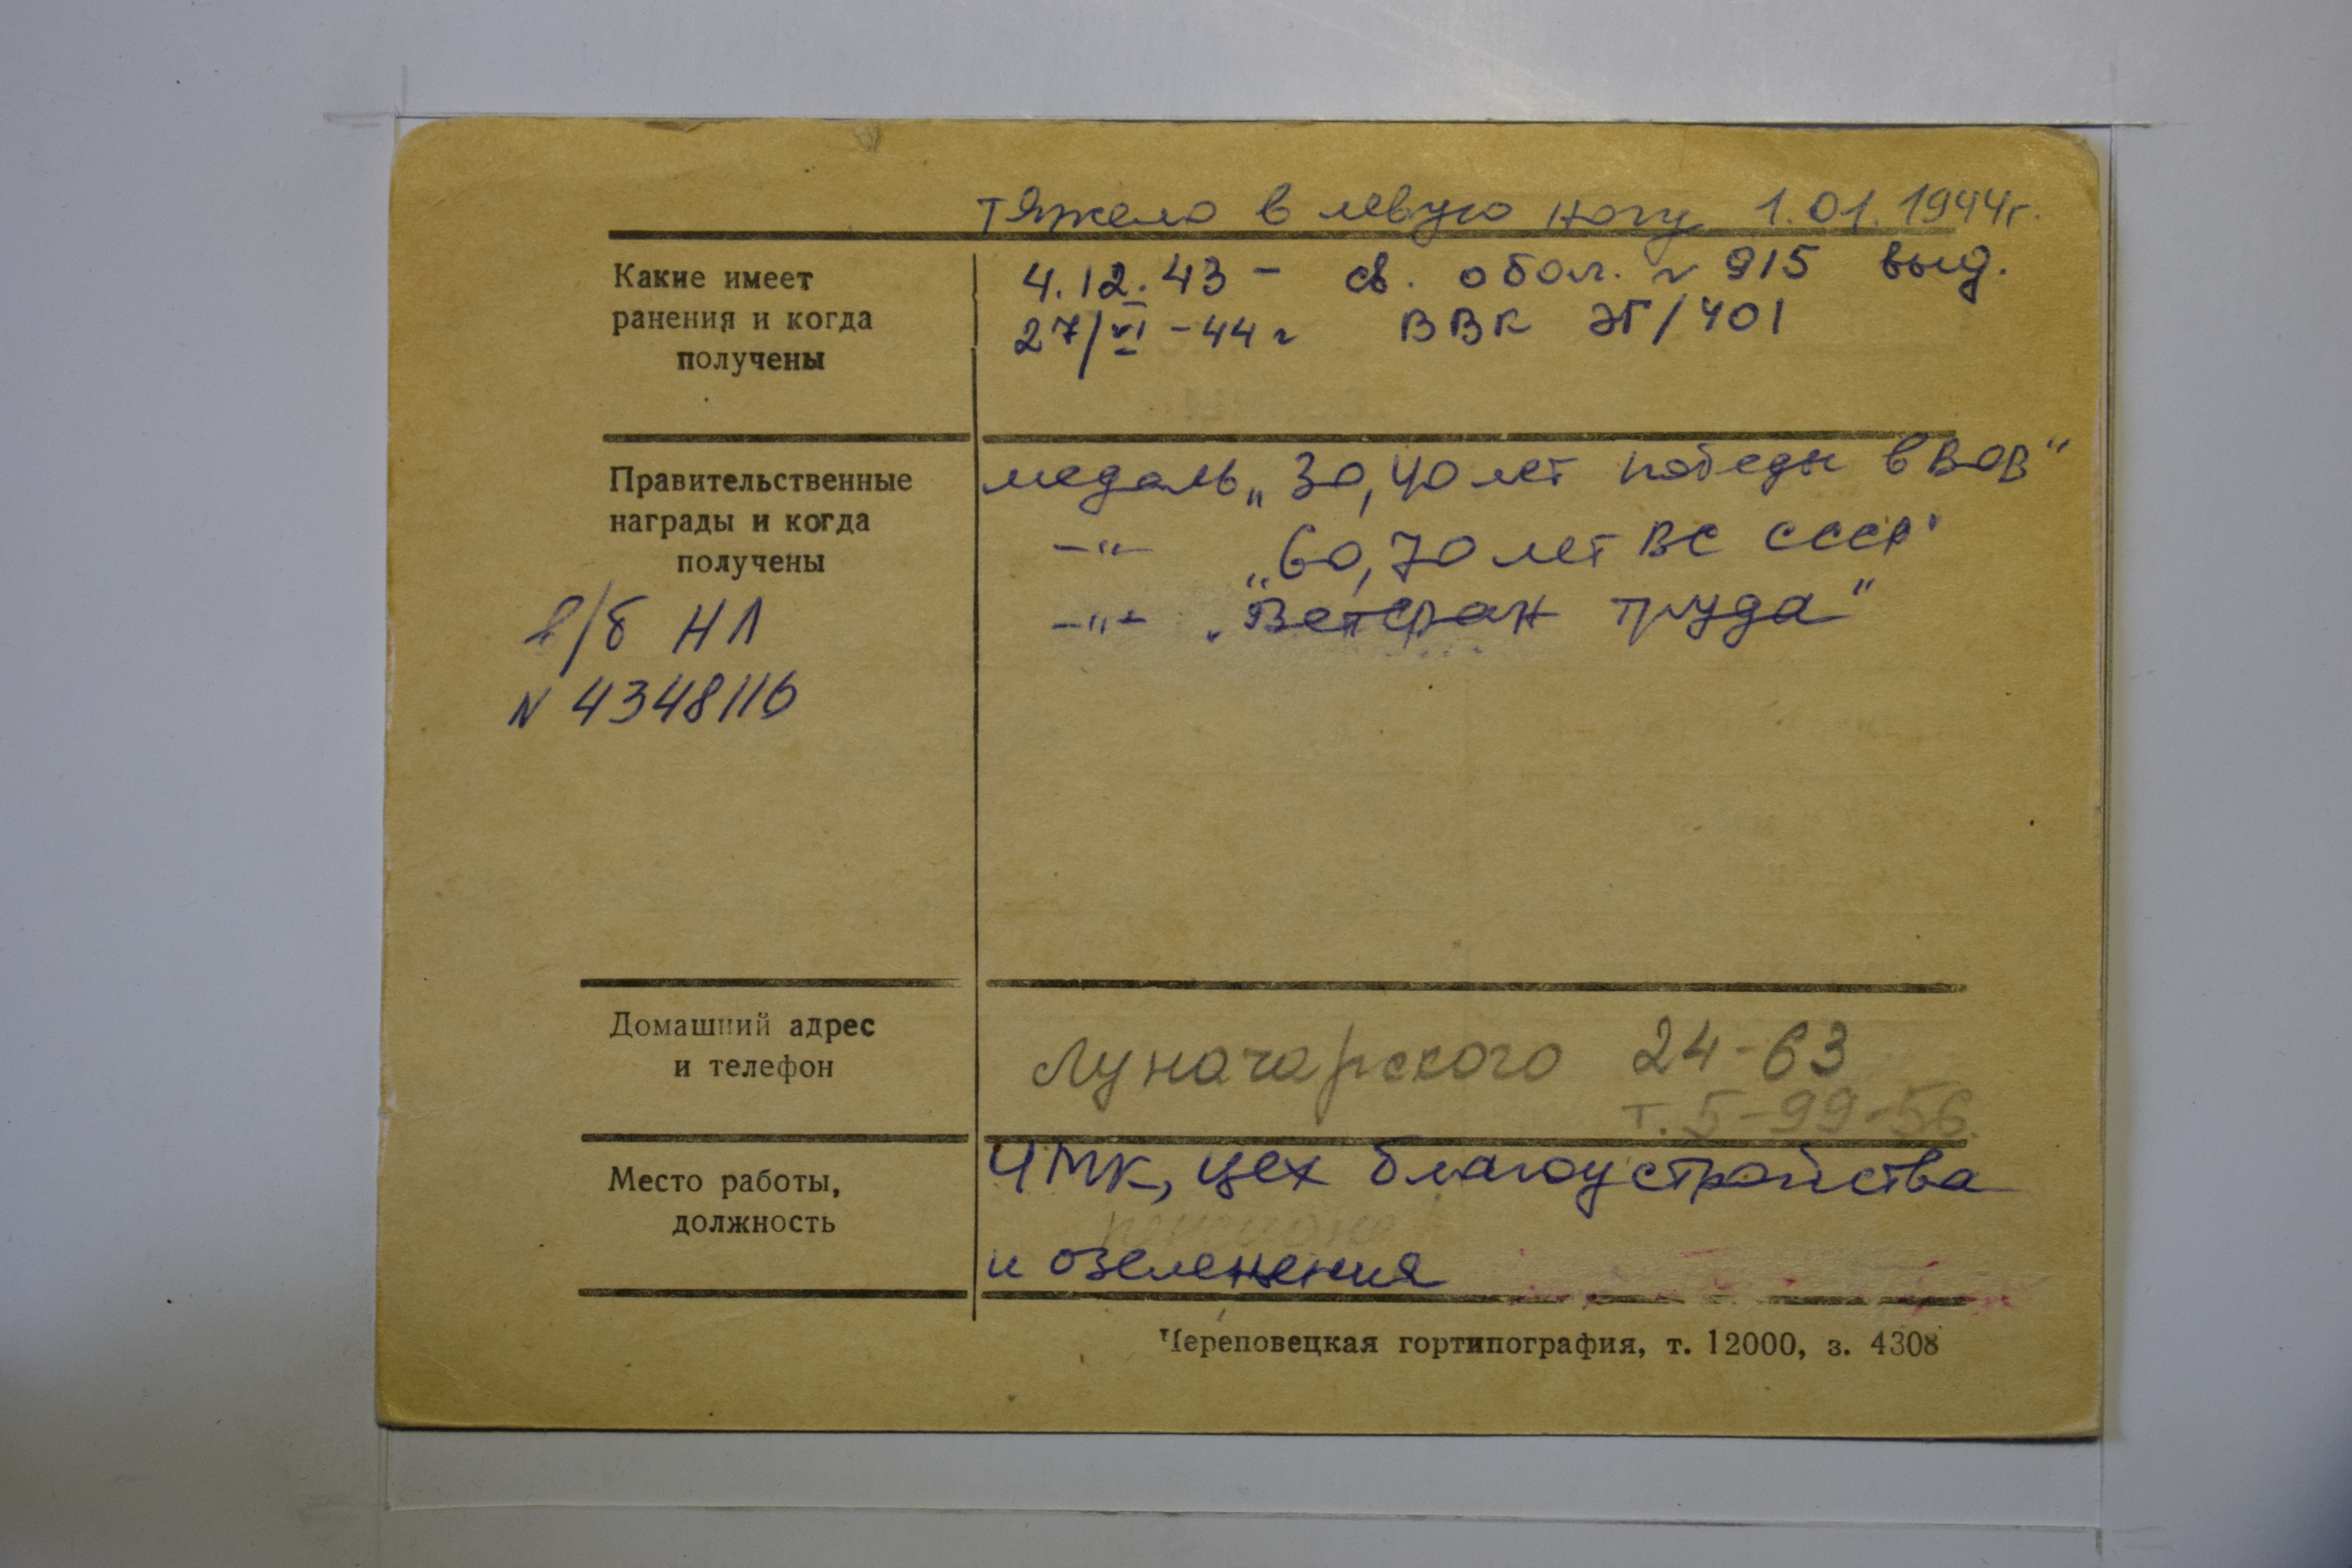 тяжело в левую ногу 1.01.1944г.
Какие имеет
ранения и когда
получены
4.12.43 - св. о бол. N 915 выд.
27/VI -44 г ВВК ЭГ/401
Правительственные
награды и когда
получены
медаль „30, 40 лет победы в ВОВ"
-"- „60, 70 лет ВС СССР"
-"- „Ветеран труда"
/б НЛ
N 4348116
Домашний адрес
и телефон
Луначарского 24-63
т. 5-99-56.
Место работы,
должность
ЧМК, цех благоустройства
и озеленения
Череповецкая гортипография, т. 12000, з. 4308